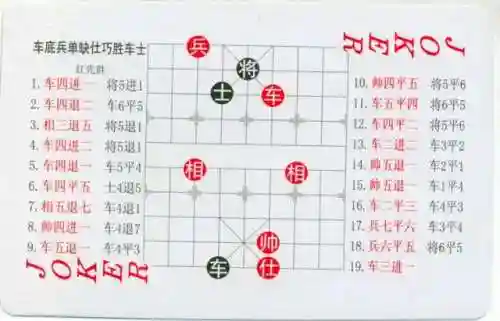 车底兵单缺仕巧胜车士
红先胜
1. 车四进一 将5进1
2. 车四退二 车6平5
3. 相三退五 将5退1
4. 车四进二 将5退1
5. 车四退一 车5平4
6. 车四平五 士4退5
7. 相五退七 车4退1
8. 帅四进一 车4退7
9. 车五退一 车4平3
JOKER
兵
将
士
车
相
相
帅
车
仕
JOKER
10. 帅四平五 将5平6
11. 车五平四 将6平5
12. 车四平二 将5平6
13. 车二进二 车3平2
14. 帅五退一 车2平1
15. 帅五退一 车1平4
16. 车二平三 车4平3
17. 兵七平六 车3平4
18. 兵六平五 将6平5
19. 车三进一